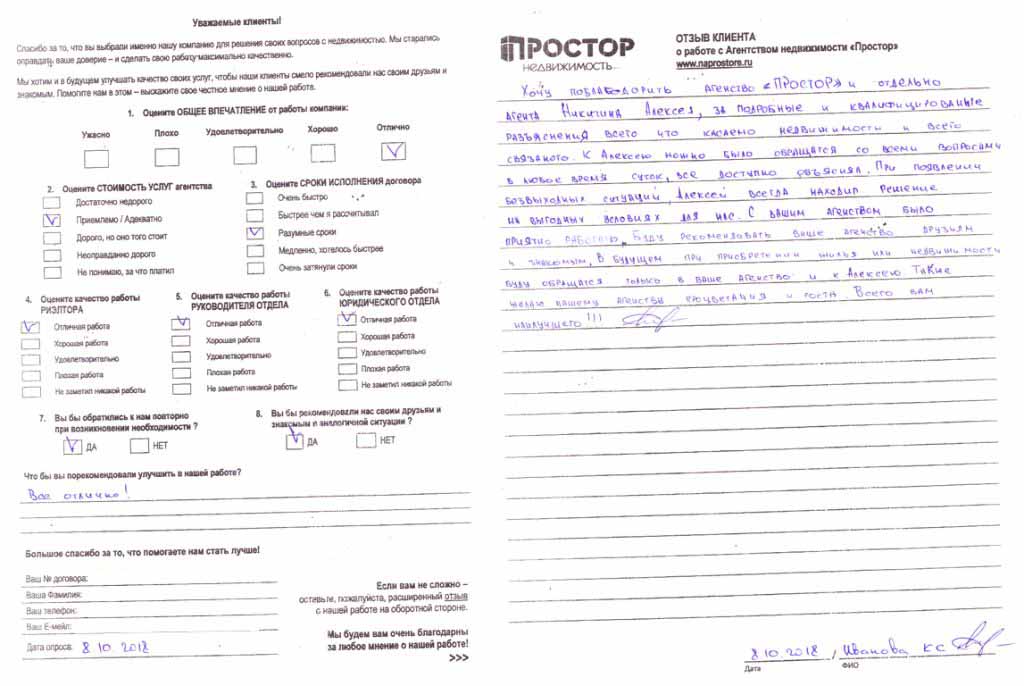 Уважаемые клиенты!
Спасибо за то, что вы выбрали именно нашу компанию для решения своих вопросов с недвижимостью. Мы старались
оправдать ваше доверие – и сделать свою работу максимально качественно.
Мы хотим и в будущем улучшать качество своих услуг, чтобы наши клиенты смело рекомендовали нас своим друзьям и
знакомым. Помогите нам в этом – выскажите свое честное мнение о нашей работе.
1. Оцените ОБЩЕЕ ВПЕЧАТЛЕНИЕ от работы компании:
Ужасно Плохо Удовлетворительно Хорошо Отлично
2. Оцените СТОИМОСТЬ УСЛУГ агентства
Достаточно недорого
Приемлемо / Адекватно
Дорого, но оно того стоит
Неоправданно дорого
Не понимаю, за что платил
3. Оцените СРОКИ ИСПОЛНЕНИЯ договора
Очень быстро
Быстрее чем я рассчитывал
Разумные сроки
Медленно, хотелось быстрее
Очень затянули сроки
4. Оцените качество работы
РИЭЛТОРА
Отличная работа
Хорошая работа
Удовлетворительно
Плохая работа
Не заметил никакой работы
5. Оцените качество работы
РУКОВОДИТЕЛЯ ОТДЕЛА
Отличная работа
Хорошая работа
Удовлетворительно
Плохая работа
Не заметил никакой работы
6. Оцените качество работы
ЮРИДИЧЕСКОГО ОТДЕЛА
Отличная работа
Хорошая работа
Удовлетворительно
Плохая работа
Не заметил никакой работы
7. Вы бы обратились к нам повторно
при возникновении необходимости ?
ДА НЕТ
8. Вы бы рекомендовали нас своим друзьям и
знакомым в аналогичной ситуации ?
ДА НЕТ
Что бы вы порекомендовали улучшить в нашей работе?
Все отлично!
Большое спасибо за то, что помогаете нам стать лучше!
Ваш № договора:
Ваша Фамилия:
Ваш телефон:
Ваш Е-мейл:
Дата опроса: 8.10.2018
Если вам не сложно –
оставьте, пожалуйста, расширенный отзыв
с нашей работе на оборотной стороне.
Мы будем вам очень благодарны
за любое мнение о нашей работе!
>>>
ПРОСТОР
НЕДВИЖИМОСТЬ
ОТЗЫВ КЛИЕНТА
о работе с Агентством недвижимости «Простор»
www.naprostore.ru
Хочу поблагодорить агенство «ПРОСТОР» и отдельно
агента Никитина Алексея, за подробные и квалифицированые
разъяснения всего что касаемо недвижимости и всего
связаного. К Алексею можно было обращатся со всеми вопросами
в любое время суток, все доступно объяснял. При появлении
безвыходных ситуаций, Алексей всегда находил решение
на выгодных условиях для нас. С вашим агенством было
приятно работать, буду рекомендовать ваше агенство друзьям
и знакомым, в будущем при приобретении жилья или недвижимости
буду обращатся только в ваше агенство и к Алексею. Также
желаю вашему агенству процветания и роста. Всего вам
наилучшего!!!
8.10.2018 / Иванова К С
Дата ФИО